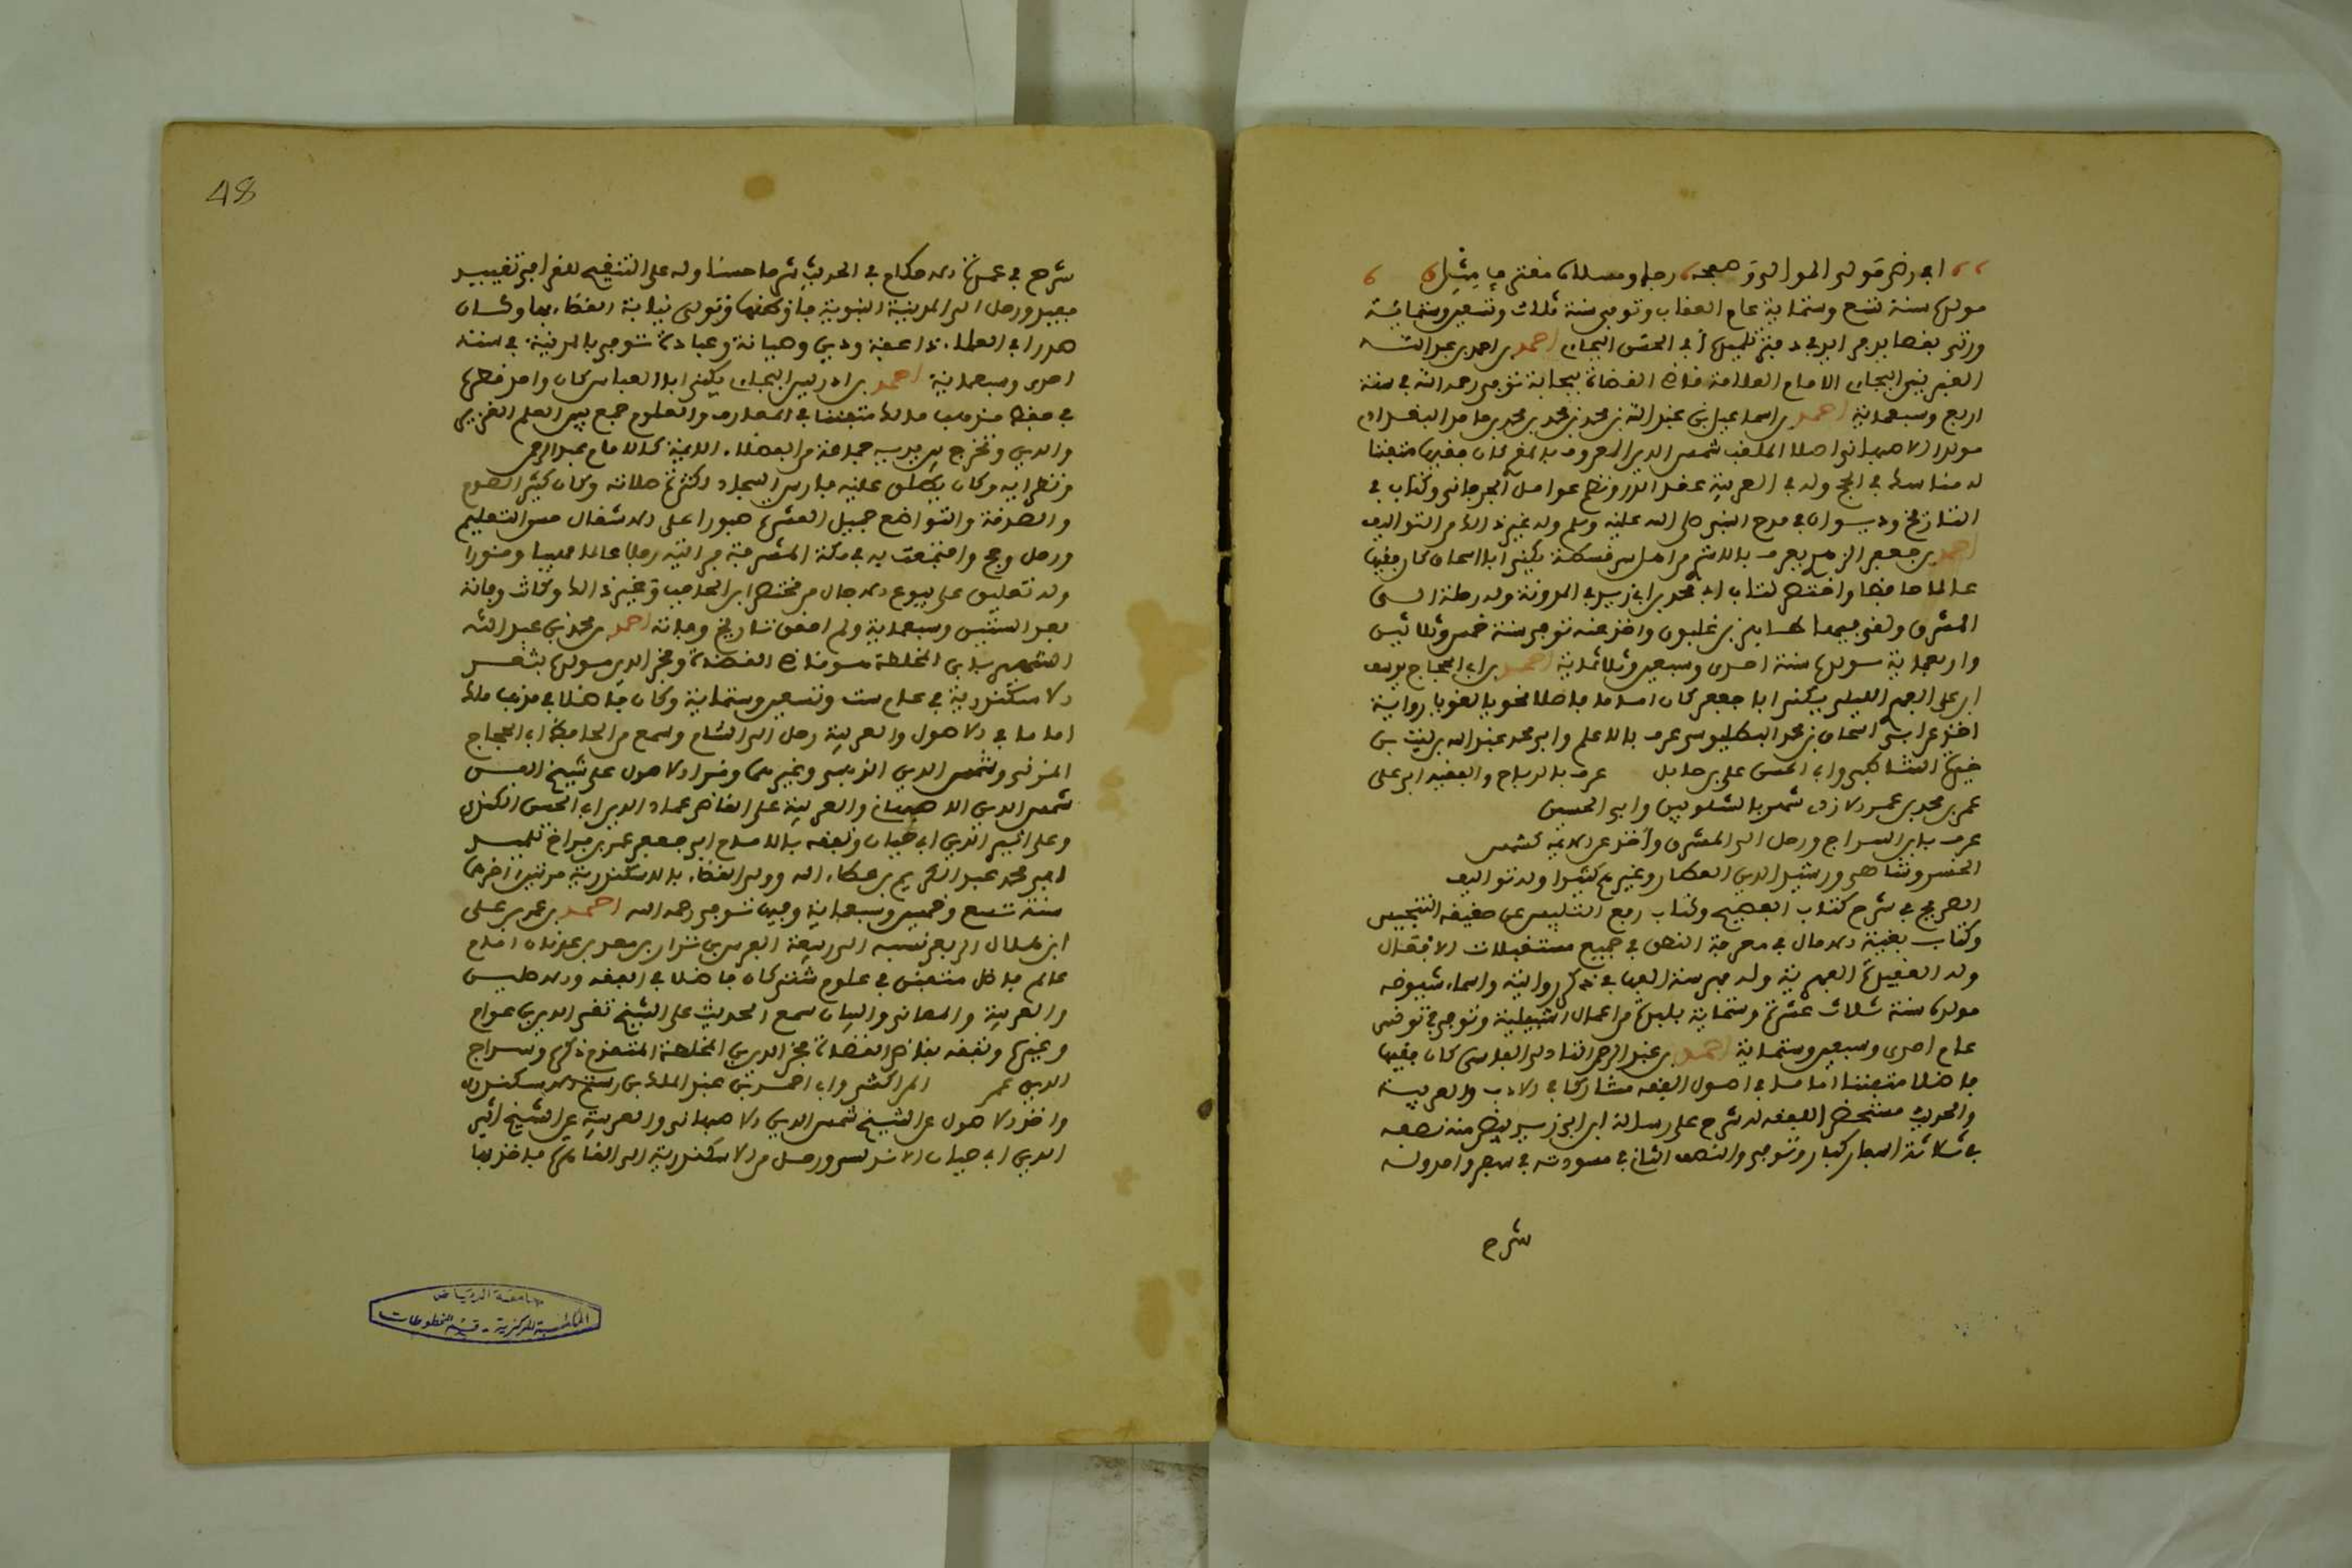 مولده سنة تسع وستماية عام العقاب وتوفي سنة ثلاث وتسعين وستمائة
ورثي بقصايد من ابرع تلميذه أبي الحسن البجاي احمد بن احمد بن عبد الله
الغبريني البجاي الامام العلامة قاضي القضاة ببجاية توفي رحمه الله في سنة
اربع وسبعماية احمد بن اسماعيل بن عبد الله بن محمد بن محمد بن محمد بن حامد البغدادي
مولدا الاصبهاني اصلا الملقب شمس الدين المعروف كان فقيها متفننا
له مناسك في الحج وله في العربية عقد الدرر ونظم عوامل الجرجاني وكتاب في
التاريخ وديوان في مدح النبي صلى الله عليه وسلم وله غير ذلك من التواليف
احمد بن جعفر الزهري يعرف من اهل سرقسطة يكنى ابا اسحاق كان فقيها
عالما حافظا واختصر كتاب ابي محمد بن ابي زيد في المدونة وله رحلة الى
المشرق ولقي فيها طاهر بن غلبون واخذ عنه توفي سنة خمس وثلاثين
واربعماية مولده سنة احدى وسبعين وثلاثماية احمد بن ابي الحجاج يوسف
ابن علي الفهري اللبلي يكنى ابا جعفر كان اماما فاضلا نحويا لغويا رواية
اخذ عن ابي اسحاق بن محمد البطليوسي عرف بالاعلم وابي محمد عبد الله بن ليث بن
خيرة الشاطبي وابي الحسن علي بن جابر عرف بالدباج والفقيه ابي علي
عمر بن محمد بن عمر الازدي شهر بالشلوبين وابي الحسين
عرف بابن السراج ورحل الى المشرق وأخذ عن الايمة كشمس
الخسروشاهي ورشيد الدين العطار وغيرهم كثيرا وله تواليف
الصريح في شرح كتاب الفصيح وكتاب رفع التلبيس عن حقيقة التجنيس
وكتاب بغية الامال في معرفة النطق في جميع مستقبلات الافعال
وله العقيدة الفهرية وله فهرسة الفها في ذكر روايته واسماء شيوخه
مولده سنة ثلاث عشرة وستماية بلبلة من اعمال اشبيلية وتوفي في تونس
عام احدى وسبعين وستماية احمد بن عبد الرحمن التادلي الفاسي كان فقيها
فاضلا متفننا اماما في اصول الفقه مشاركا في الادب والعربية
والحديث مستحضرا للفقه له شرح على رسالة ابن ابي زيد بيض منه نصفه
في ثلاثة اسفار كبار وتوفي والنصف الثاني في مسودته في سفر واحد وله
شرح
48
شرح في عمدة الاحكام في الحديث شرحا حسنا وله على التنقيح للقرافي تقييد
مفيد ورحل الى المدينة النبوية فاوطنها وتولى نيابة القضاء بها وكان
صدرا في العلماء ذا عفة ودين وصيانة وعبادة توفي بالمدينة في سنة
احدى وسبعماية احمد بن ادريس البجاي يكنى ابا العباس كان واحد قطره
في حفظ مذهب مالك متفننا في المعارف والعلوم جمع بين العلم الغزير
والدين وتخرج بين يديه جماعة من الفضلاء الايمة كالامام عبد الرحمن
ونظرايه وكان يطلق عليه فارس السجاد لكثرة صلاته وكان كثير الصوم
والصدقة والتواضع جميل العشرة صبورا على الاشغال حسن التعليم
ورحل وحج واجتمعت به في مكة المشرفة فرايته رجلا عالما وقورا
وله تعليق على بيوع الاجال من مختصر ابن الحاجب وغير ذلك وكانت وفاته
بعد الستين وسبعماية ولم احقق تاريخ وفاته احمد بن محمد بن عبد الله
اشتهر بابن المخلطة هو قاضي القضاة وفخر الدين مولده بثغر
الاسكندرية في عام ست وتسعين وستماية وكان فاضلا في مذهب مالك
اماما في الاصول والعربية رحل الى الشام وسمع من الحافظ ابي الحجاج
المزي وشمس الدين الذهبي وغيرهما وقرا الاصول على شيخ الفن
شمس الدين الاصبهاني والعربية على القاضي عماد الدين ابي الحسن الكندي
وعلى اثير الدين ابي حيان وتفقه بالامام ابي جعفر عمر بن تلميذ
ابي محمد عبد الكريم بن عطاء الله وولي القضاء بالاسكندرية مرتين اخرها
سنة تسع وخمسين وسبعماية وفيها توفي رحمه الله احمد بن عمر بن علي
ابن هلال الربعي نسبه الى ربيعة الفرس بن نزار بن معد بن عدنان امام
عالم فاضل متفنن في علوم شتى كان فاضلا في الفقه والاصلين
والعربية والمعاني والبيان سمع الحديث على الشيخ تقي الدين بن عرام
وغيره وتفقه بقاضي القضاة فخر الدين بن المخلطة المتقدم ذكره وسراج
الدين عمر المراكشي وابي احمد بن عبد الملك بن رستم الاسكندري
واخذ الاصول عن الشيخ شمس الدين الاصبهاني والعربية عن الشيخ اثير
الدين ابي حيان الاندلسي ورحل من الاسكندرية الى القاهرة فاخذ بها
جامعة الرياض
المكتبة المركزية - قسم المخطوطات